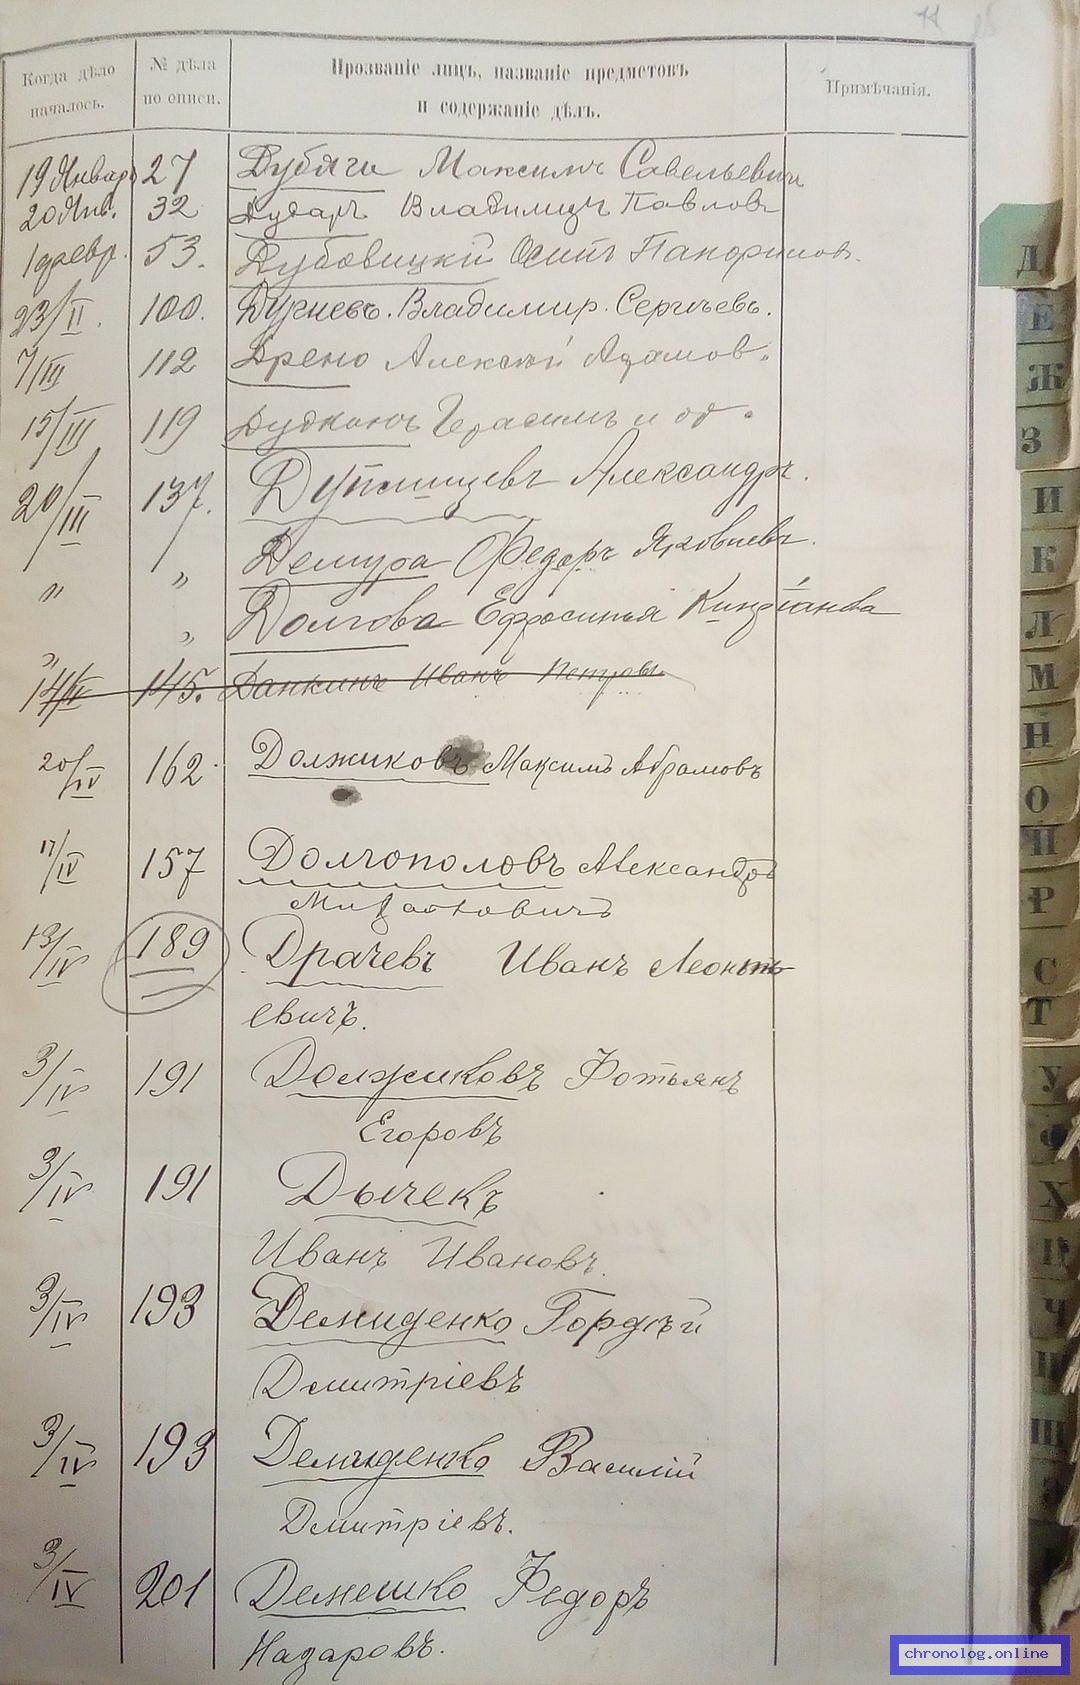 Когда дѣло началось.
№ дѣла по описи.
Прозваніе лицъ, названіе предметовъ
и содержаніе дѣлъ.
Примѣчанія.
19 Январь 27 Дубяги Максимъ Савельевич
20 Янв. 32 Дударъ Владимиръ Павловъ
1 февр. 53. Дубовицкій Осипъ Панфиловъ.
23/II. 100. Владимир. Сергѣевъ.
7/III 112 Дрено Алексѣй Адамов.
15/III 119 Герасимъ и др.
20/III 137. Александръ.
" " Демура Федоръ Яковлевъ.
" " Долгова Ефросинья
14/IV 145. Данкинъ Иванъ Петровъ.
20/IV 162. Должиковъ Максимъ Абрамовъ
17/IV 157 Долгополовъ Александръ
13/IV 189 Драчевъ Иванъ Леонть
евичъ.
3/IV 191 Должиковъ Фотьянъ
Егоровъ
3/IV 191 Дычекъ
Иванъ Ивановъ.
3/IV 193 Демиденко Гордѣй
Дмитріевъ
3/IV 193 Демиденко Василій
Дмитріевъ.
3/IV 201 Демешко Федоръ
Назаровъ.
Д
Е
Ж
З
И
К
Л
М
Н
О
П
Р
С
Т
У
Ф
Х
Ц
Ч
Ш
chronolog.online